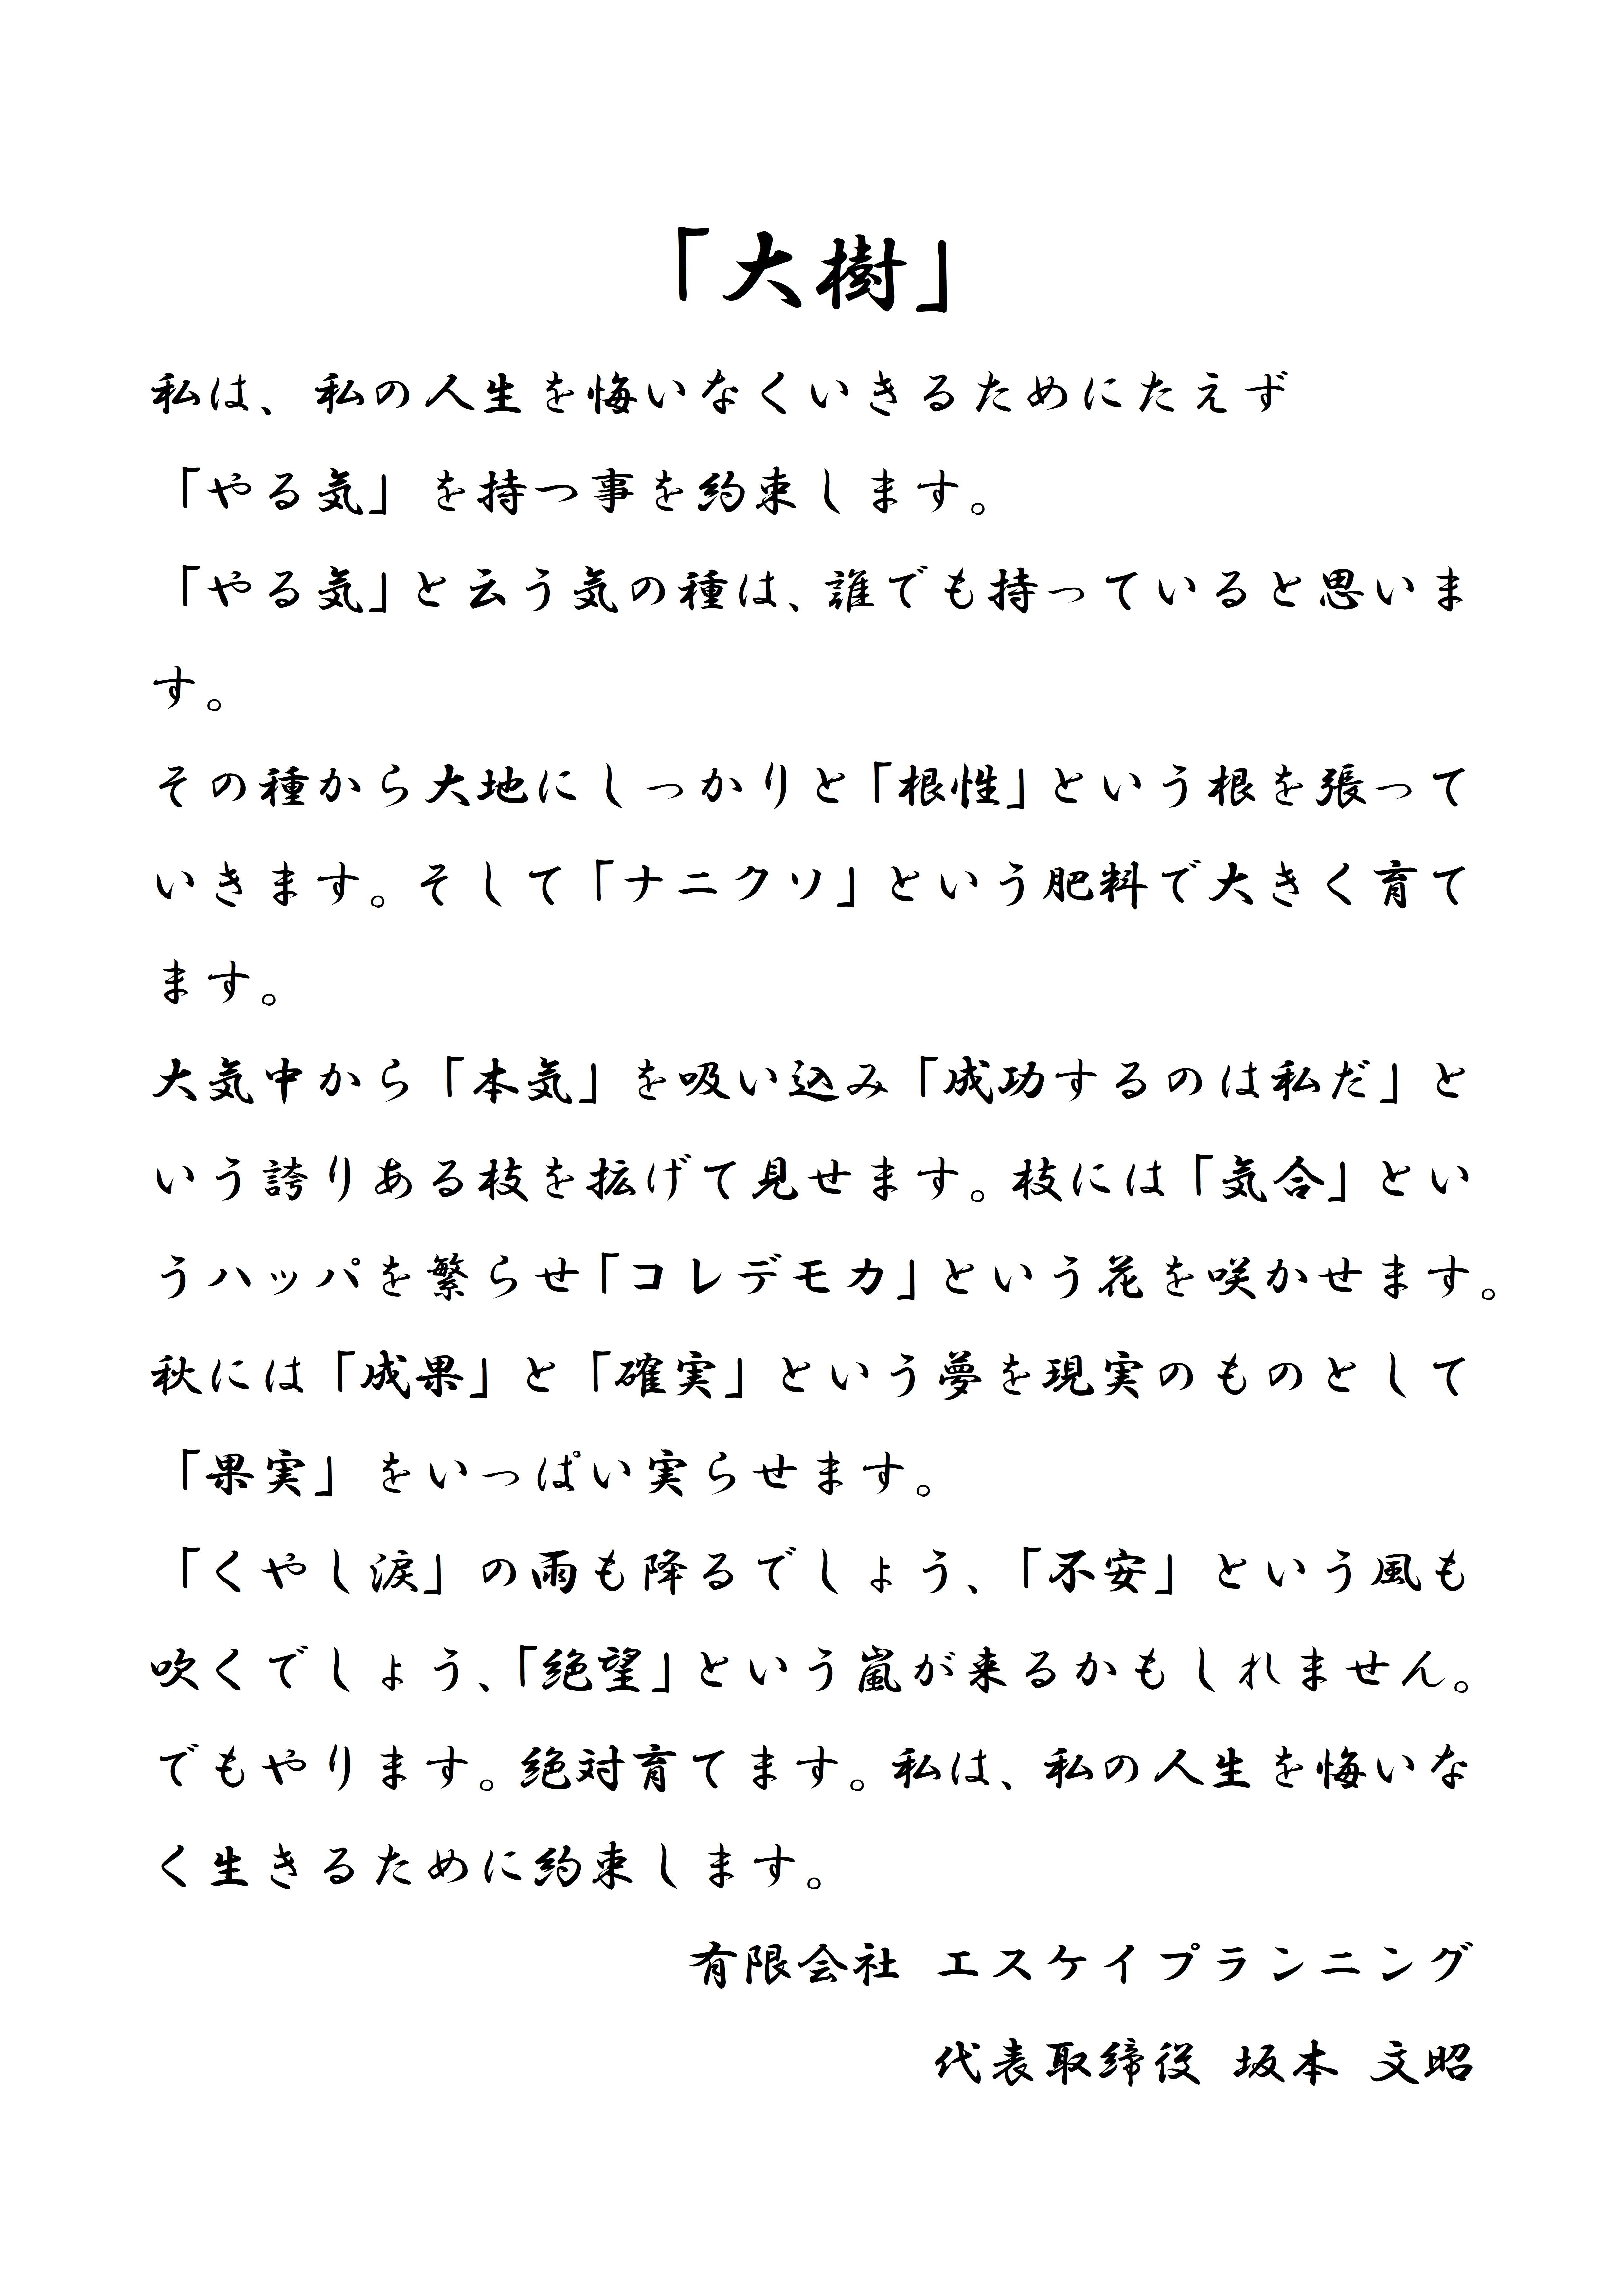 「大樹」
私は、私の人生を悔いなくいきるためにたえず
「やる気」を持つ事を約束します。
「やる気」と云う気の種は、誰でも持っていると思いま
す。
その種から大地にしっかりと「根性」という根を張って
いきます。そして「ナニクソ」という肥料で大きく育て
ます。
大気中から「本気」を吸い込み「成功するのは私だ」と
いう誇りある枝を拡げて見せます。枝には「気合」とい
うハッパを繁らせ「コレデモカ」という花を咲かせます。
秋には「成果」と「確実」という夢を現実のものとして
「果実」をいっぱい実らせます。
「くやし涙」の雨も降るでしょう、「不安」という風も
吹くでしょう、「絶望」という嵐が来るかもしれません。
でもやります。絶対育てます。私は、私の人生を悔いな
く生きるために約束します。
有限会社 エスケイプランニング
代表取締役 坂本 文昭